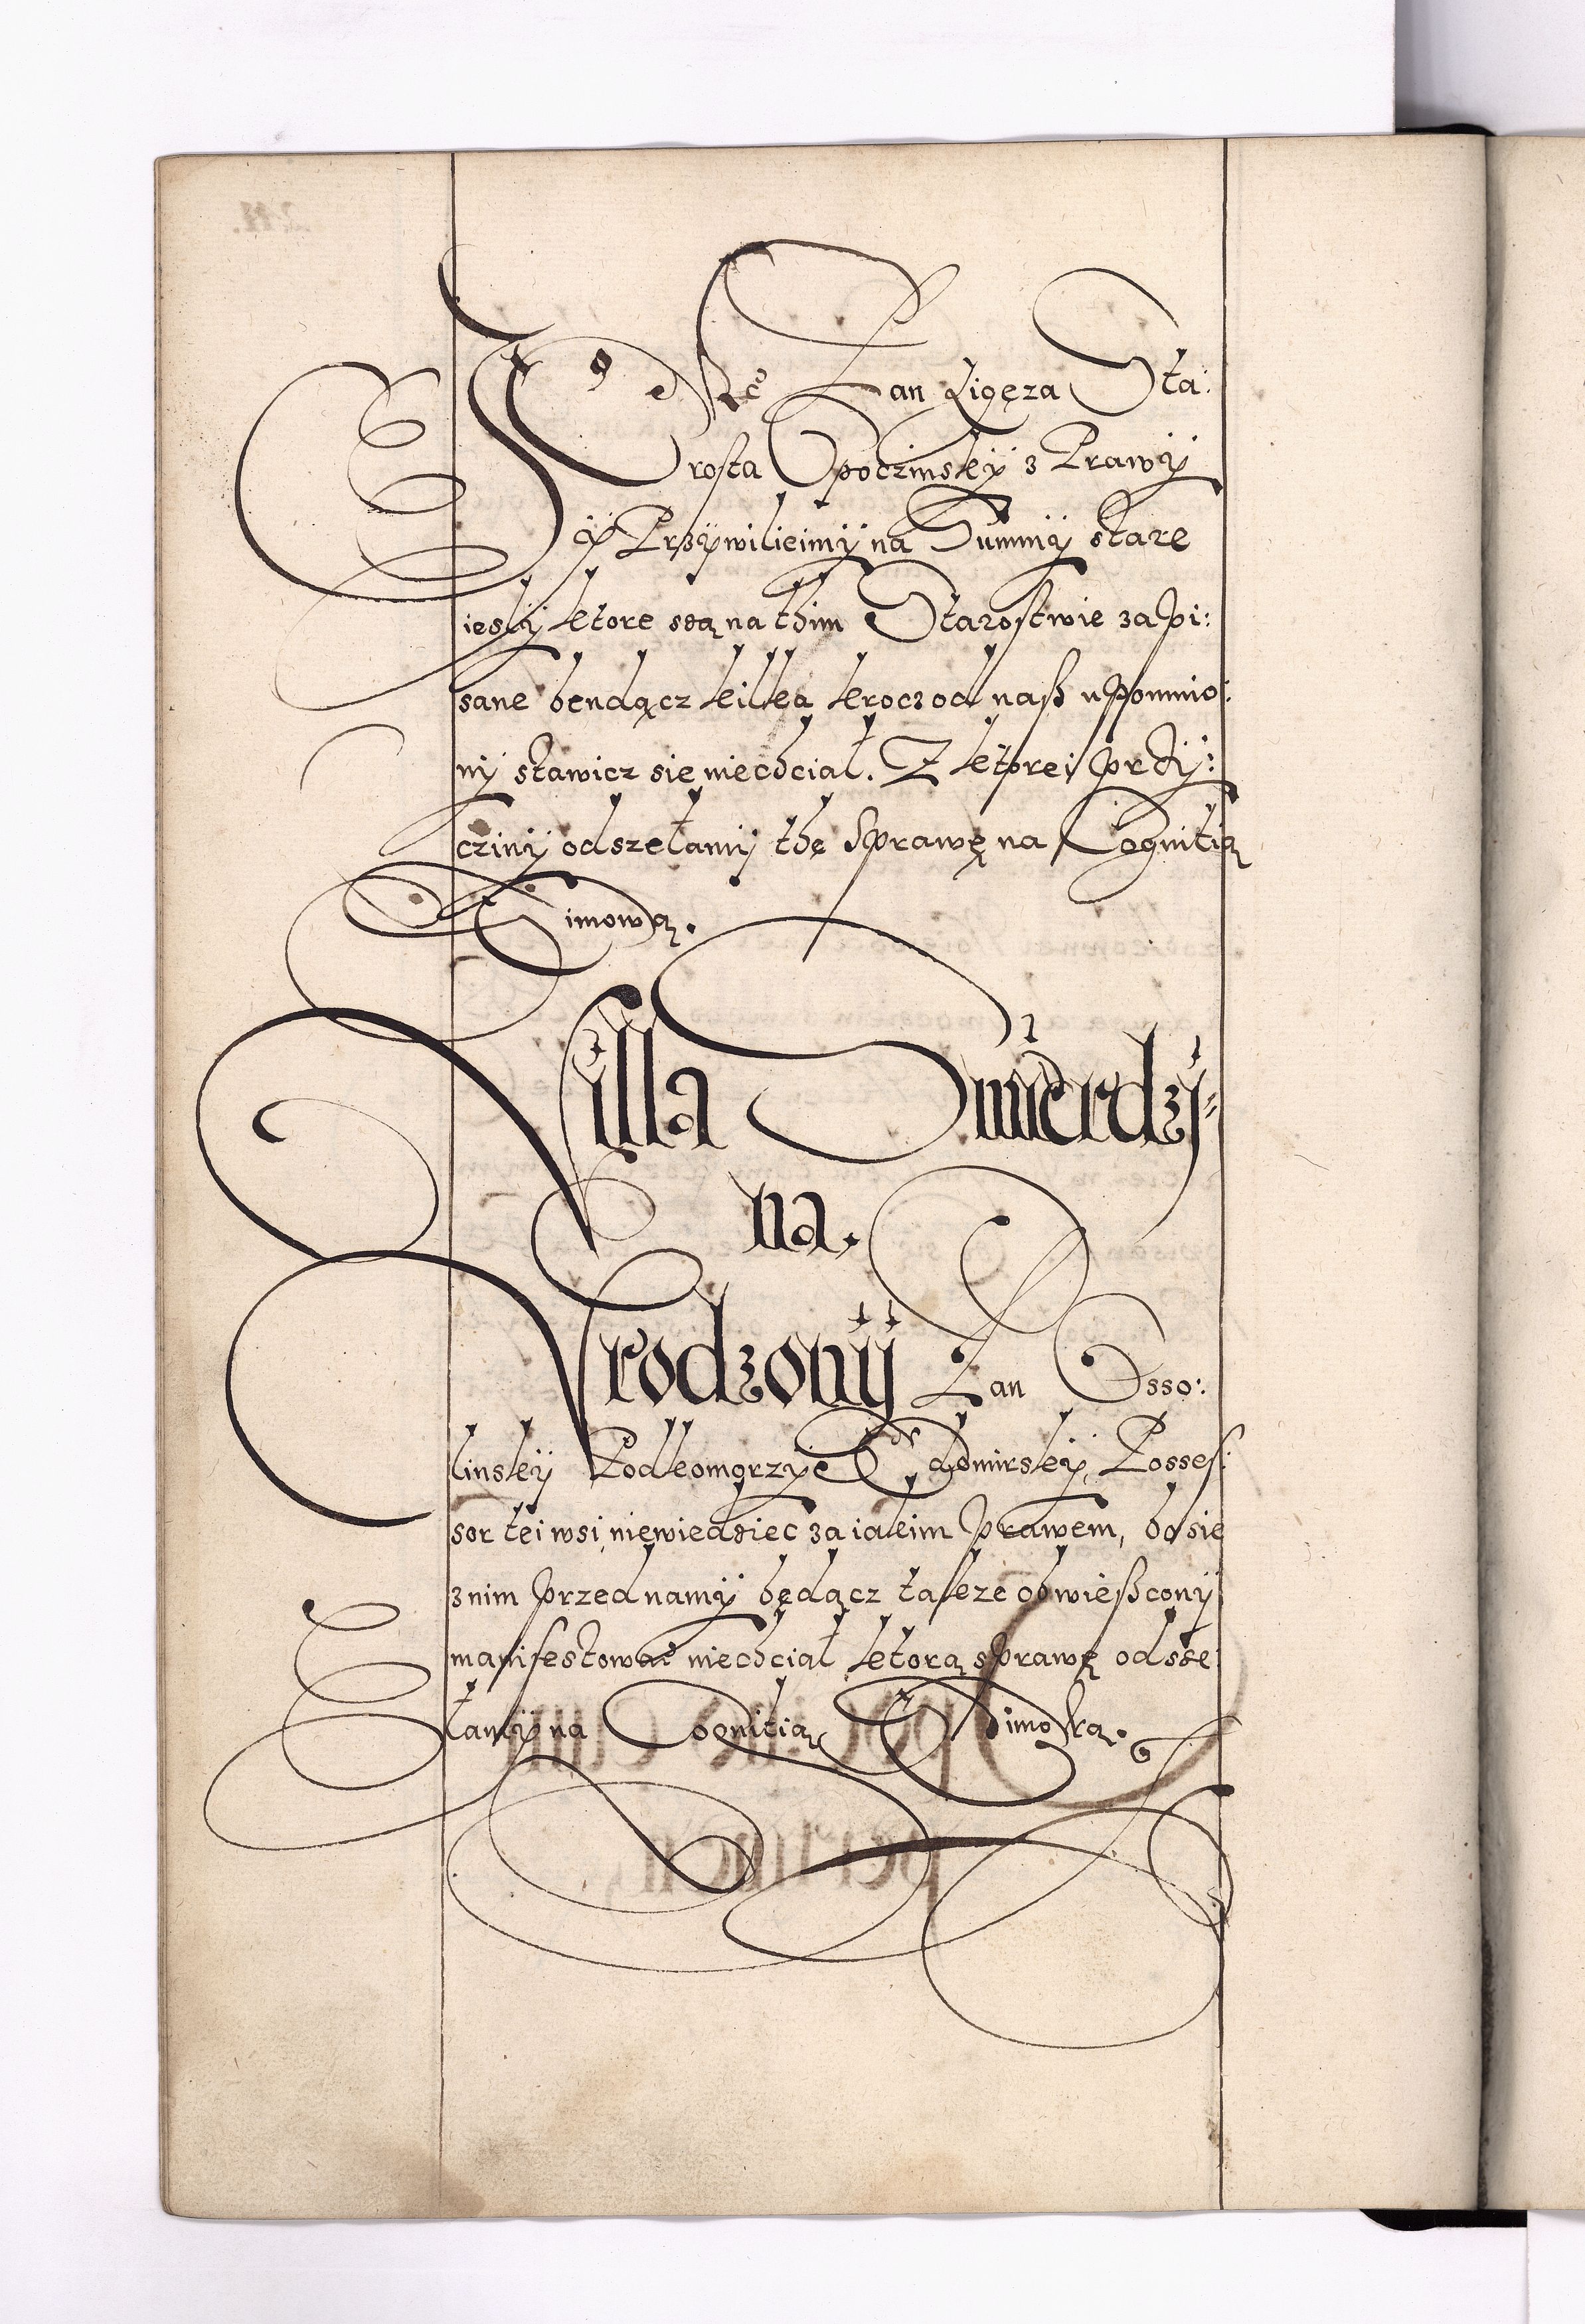 Jan Ligęza Sta:
rosta Opoczinsky z Prawÿ
ÿ Przÿwilieimÿ na Summÿ stare
iesly ktore są na thim Starostwie zapi:
sane bendącz kilka krocz od naß upomnio:
nÿ stawicz się niechciał. Z ktorei przÿ:
czinÿ odszełamÿ thę Sprawę na Cognitią
Simową.
Villa Smierdzÿ-
na.
Vrodzonÿ Jan Osso:
linskÿ Podkomorzÿ Sadomirskÿ, Posses:
sor tei wsi, niewiedziec za iakim prawem, bo się
z nim przed namÿ będącz takze obwießczonÿ
manifestowac niechciał ktorą sprawę odsse:
łamÿ na Cognitią Simową.